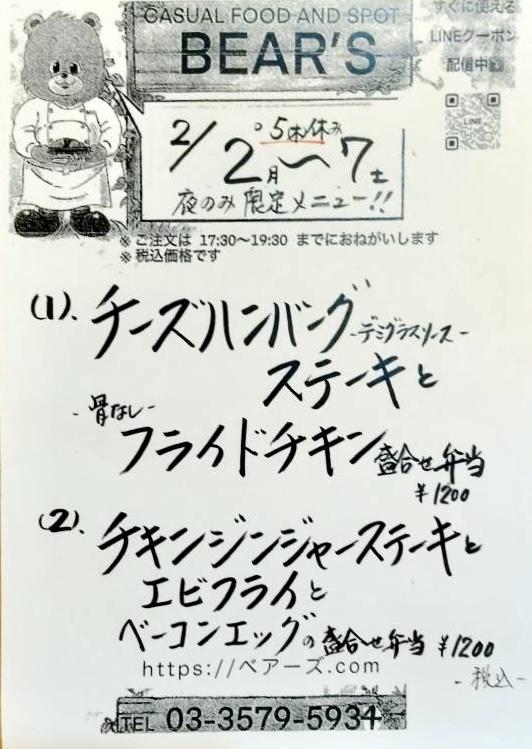 CASUAL FOOD AND SPOT
BEAR'S
すぐに使える
LINEクーポン
配信中
LINE
2/2月〜7土
5木休み
夜のみ限定メニュー!!
※ ご注文は 17:30〜19:30 までにおねがいします
※ 税込価格です
(1). チーズハンバーグ
-デミグラスソース-
ステーキと
-骨なし-
フライドチキン盛合せ弁当
¥1200
(2). チキンジンジャーステーキと
エビフライと
ベーコンエッグの盛合せ弁当 ¥1200
https://ベアーズ.com
-税込-
TEL 03-3579-5934